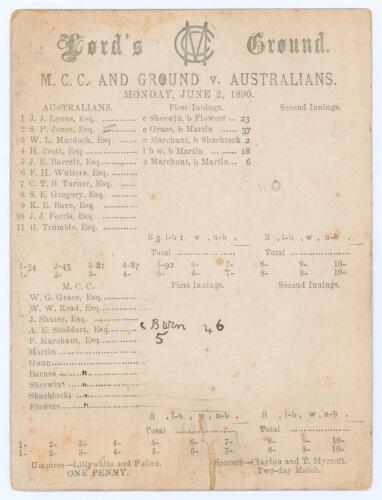 Lord's MCC Ground.
M. C. C. AND GROUND v. AUSTRALIANS.
MONDAY, JUNE 2, 1890.
AUSTRALIANS. First Innings. Second Innings.
1 J. J. Lyons, Esq. ............ c Sherwin, b Flowers ... 23
2 S. P. Jones, Esq. ............ c Grace, b Martin ...... 37
3 W. L. Murdock, Esq. ......... c Marchant, b Shacklock 2
4 H. Trott, Esq. ............... l b w, b Martin ......... 18
5 J. E. Barrett, Esq. ............ c Marchant, b Martin... 6
6 F. H. Walters, Esq. ............
7 C. T. B. Turner, Esq. .........
8 S. E. Gregory, Esq. ............
9 K. E. Burn, Esq ...............
10 J. J. Ferris, Esq. ...............
11 H. Trumble, Esq. ............
B 3, l-b 1, w , n-b , B , l-b , w , n-b ,
Total .................. Total ..................
1-34 2-45 3-81 4-87 5-92 6- 7- 8- 9- 10-
1- 2- 3- 4- 5- 6- 7- 8- 9- 10-
M. C. C. First Innings. Second Innings.
W. G. Grace, Esq...............
W. W. Read, Esq. ...............
J. Shuter, Esq. ..................
A. E. Stoddart, Esq............. c Burn 46
F. Marchant, Esq. ............... 5
Martin ..............................
Gunn ..............................
Barnes ..............................
Sherwin ...........................
Shacklock ........................
Flowers ...........................
B , l-b , w , n-b , B , l-b , w , n-b ,
Total .................. Total ..................
1- 2- 3- 4- 5- 6- 7- 8- 9- 10-
1- 2- 3- 4- 5- 6- 7- 8- 9- 10-
Umpires—Lillywhite and Pullen. Scorers—Clayton and T. Mycroft.
ONE PENNY. Two-day Match.